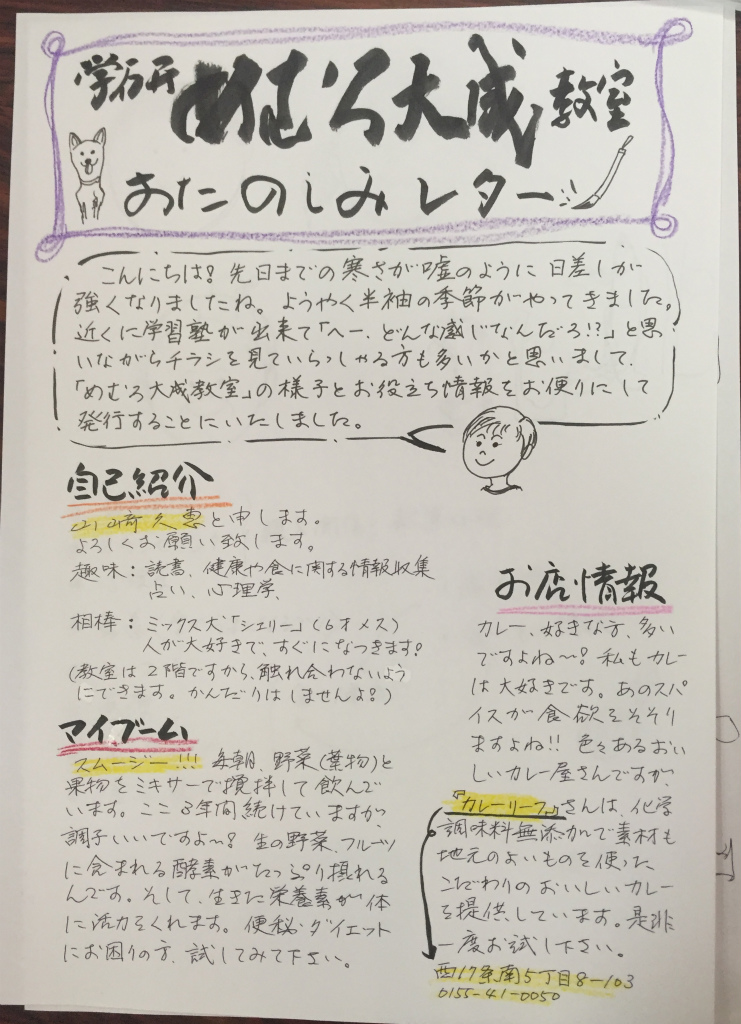 学研 めむろ大成教室
おたのしみレター
こんにちは! 先日までの寒さが嘘のように日差しが
強くなりましたね。ようやく半袖の季節がやってきました。
近くに学習塾が出来て「へー、どんな感じなんだろ!?」と思
いながらチラシを見ていらっしゃる方も多いかと思いまして、
「めむろ大成教室」の様子とお役立ち情報をお便りにして
発行することにいたしました。
自己紹介
山﨑久恵と申します。
よろしくお願い致します。
趣味: 読書、健康や食に関する情報収集
占い、心理学、
相棒: ミックス犬「シェリー」(6才メス)
人が大好きで、すぐになつきます!
(教室は2階ですから、触れ合わないよう
にできます。かんだりはしませんよ!)
マイブーム
スムージー!!! 毎朝、野菜(葉物)と
果物をミキサーで攪拌して飲んで
います。ここ3年間続けていますが、
調子いいですよ〜! 生の野菜、フルーツ
に含まれる酵素がたっぷり摂れる
んです。そして、生きた栄養素が体
に活力をくれます。便秘・ダイエット
にお困りの方、試してみて下さい。
お店情報
カレー、好きな方、多い
ですよね〜! 私もカレー
は大好きです。あのスパ
イスが食欲をそそり
ますよね!! 色々あるおい
しいカレー屋さんですが、
『カレーリーフ』さんは、化学
調味料無添加で素材も
地元のよいものを使った
こだわりのおいしいカレー
を提供しています。是非
一度お試し下さい。
西17条南5丁目8-103
0155-41-0050